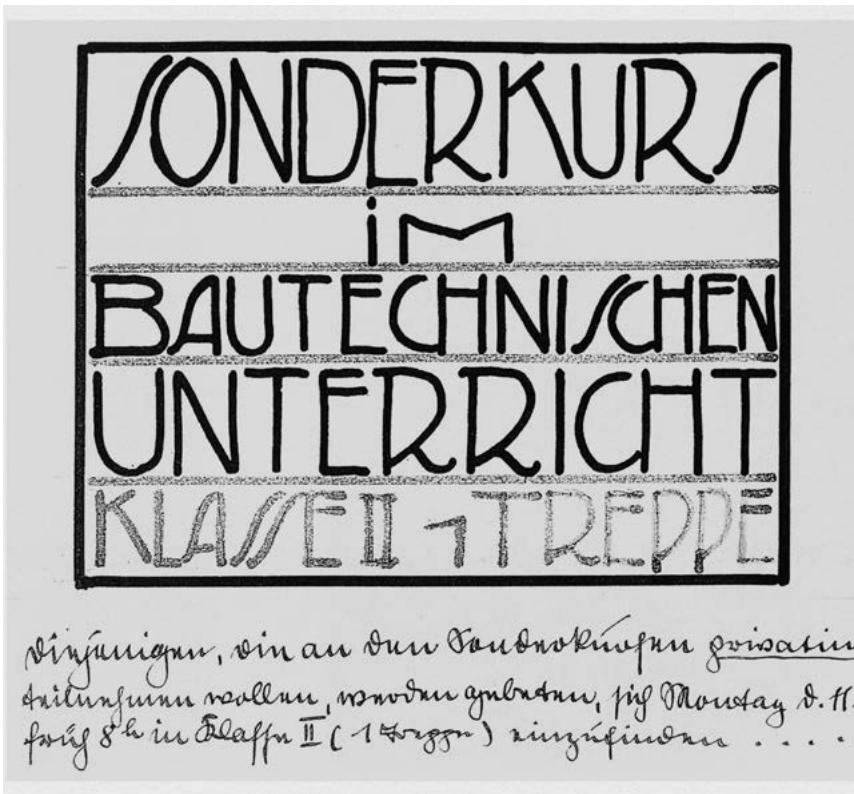 SONDERKURS
im
BAUTECHNISCHEN
UNTERRICHT
KLASSE II 1 TREPPE
diejenigen, die an den Sonderkursen privatim
teilnehmen wollen, werden gebeten, sich Montag d. 11.
früh 8h in Klasse II ( 1 Treppe ) einzufinden . . . .